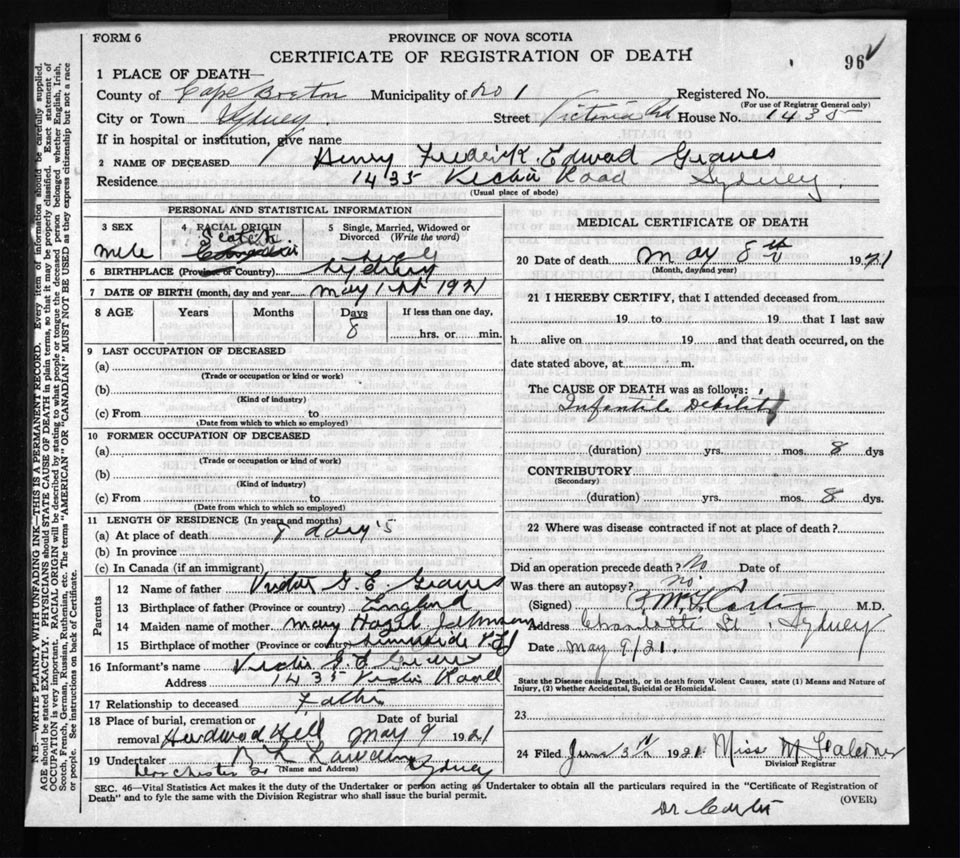 FORM 6
PROVINCE OF NOVA SCOTIA
CERTIFICATE OF REGISTRATION OF DEATH
96
1 PLACE OF DEATH—
County of Cape Breton Municipality of No 1 Registered No.
(For use of Registrar General only)
City or Town Sydney Street Victoria Rd House No. 1435
If in hospital or institution, give name
2 NAME OF DECEASED Henry Frederick Edward Graves
Residence 1435 Road Sydney
(Usual place of abode)
PERSONAL AND STATISTICAL INFORMATION
3 SEX
male
4 RACIAL ORIGIN
Scotch
5 Single, Married, Widowed or Divorced (Write the word)
6 BIRTHPLACE (Province or Country) Sydney
7 DATE OF BIRTH (month, day and year) May 1st 1921
8 AGE Years Months Days If less than one day,
8 hrs. or min.
9 LAST OCCUPATION OF DECEASED
(a)
(Trade or occupation or kind or work)
(b)
(Kind of industry)
(c) From to
(Date from which to which so employed)
10 FORMER OCCUPATION OF DECEASED
(a)
(Trade or occupation or kind of work)
(b)
(Kind of industry)
(c) From to
(Date from which to which so employed)
11 LENGTH OF RESIDENCE (In years and months)
(a) At place of death 8 days
(b) In province
(c) In Canada (if an immigrant)
Parents
12 Name of father Victor G. E. Graves
13 Birthplace of father (Province or country) England
14 Maiden name of mother Mary Hazel Johnson
15 Birthplace of mother (Province or country) Summerside P.E.I
16 Informant's name Victor G E Graves
Address 1435 Road
17 Relationship to deceased Father
18 Place of burial, cremation or removal Hardwood Hill Date of burial May 9 1921
19 Undertaker
(Name and Address)
Dorchester St Sydney
MEDICAL CERTIFICATE OF DEATH
20 Date of death May 8th 1921
(Month, day and year)
21 I HEREBY CERTIFY, that I attended deceased from
19 to 19 that I last saw
h alive on 19 and that death occurred, on the
date stated above, at m.
The CAUSE OF DEATH was as follows:
Infantile Debility
(duration) yrs. mos. 8 dys
CONTRIBUTORY
(Secondary)
(duration) yrs. mos. 8 dys.
22 Where was disease contracted if not at place of death?
Did an operation precede death? No Date of
Was there an autopsy? no
(Signed) M.D.
Address Charlotte St. Sydney
Date May 9/21.
State the Disease causing Death, or in death from Violent Causes, state (1) Means and Nature of Injury, (2) whether Accidental, Suicidal or Homicidal.
23
24 Filed June 3rd 1921 Miss M Falconer
Division Registrar
SEC. 46—Vital Statistics Act makes it the duty of the Undertaker or person acting as Undertaker to obtain all the particulars required in the "Certificate of Registration of
Death" and to fyle the same with the Division Registrar who shall issue the burial permit.
(OVER)
N.B.—WRITE PLAINLY WITH UNFADING INK—THIS IS A PERMANENT RECORD. Every item of information should be carefully supplied.
AGE should be stated EXACTLY. PHYSICIANS should STATE CAUSE OF DEATH in plain terms, so that it may be properly classified. Exact statement of
OCCUPATION is very important. RACIAL ORIGIN will be described by stating to what people or tongue the deceased person belonged whether English, Irish,
Scotch, French, German, Russian, Ruthenian, etc. The terms "AMERICAN" OR "CANADIAN" MUST NOT BE USED as they express citizenship but not a race
or people. See instructions on back of Certificate.